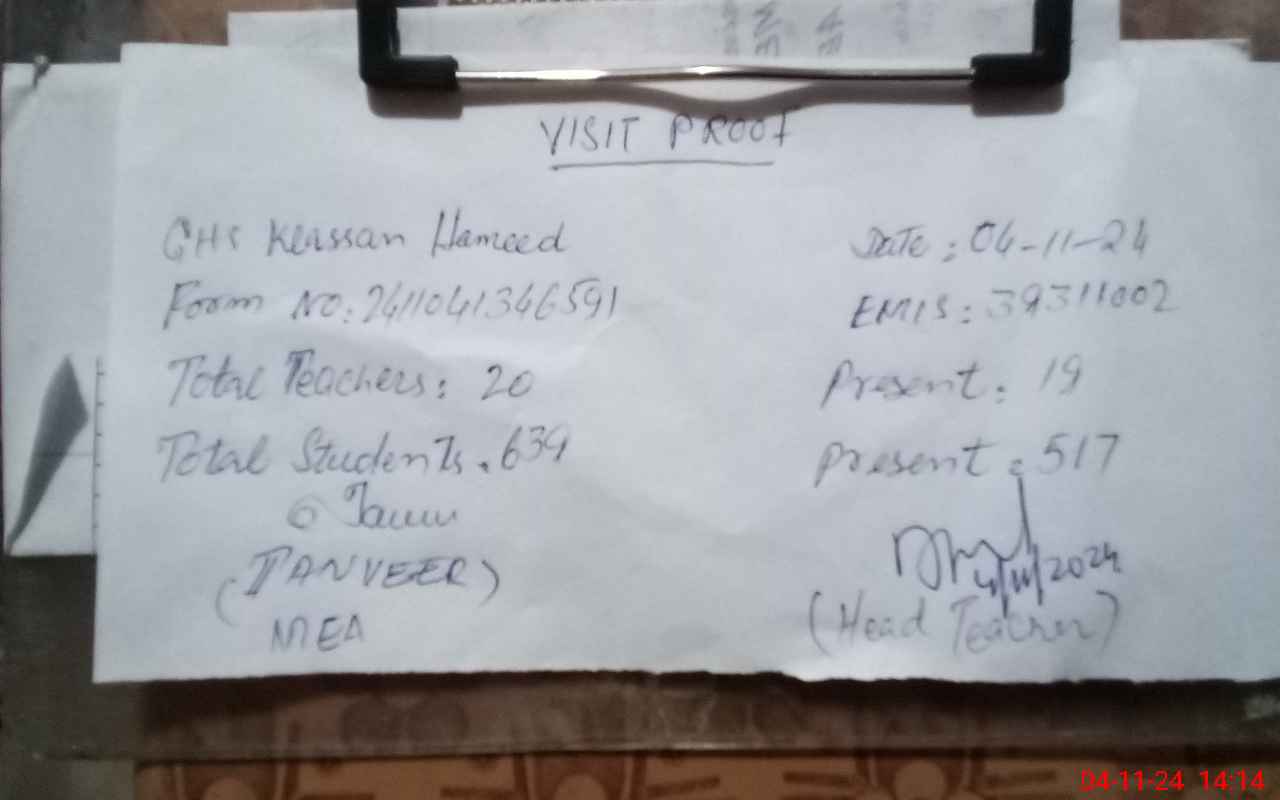 VISIT PROOF
GHS Khassan Hameed
Date: 04-11-24
Form NO: 2411041346591
EMIS: 39311002
Total Teachers: 20
Present: 19
Total Students: 639
Present: 517
(TANVEER)
4/11/2024
MEA
(Head Teacher)
04-11-24 14:14